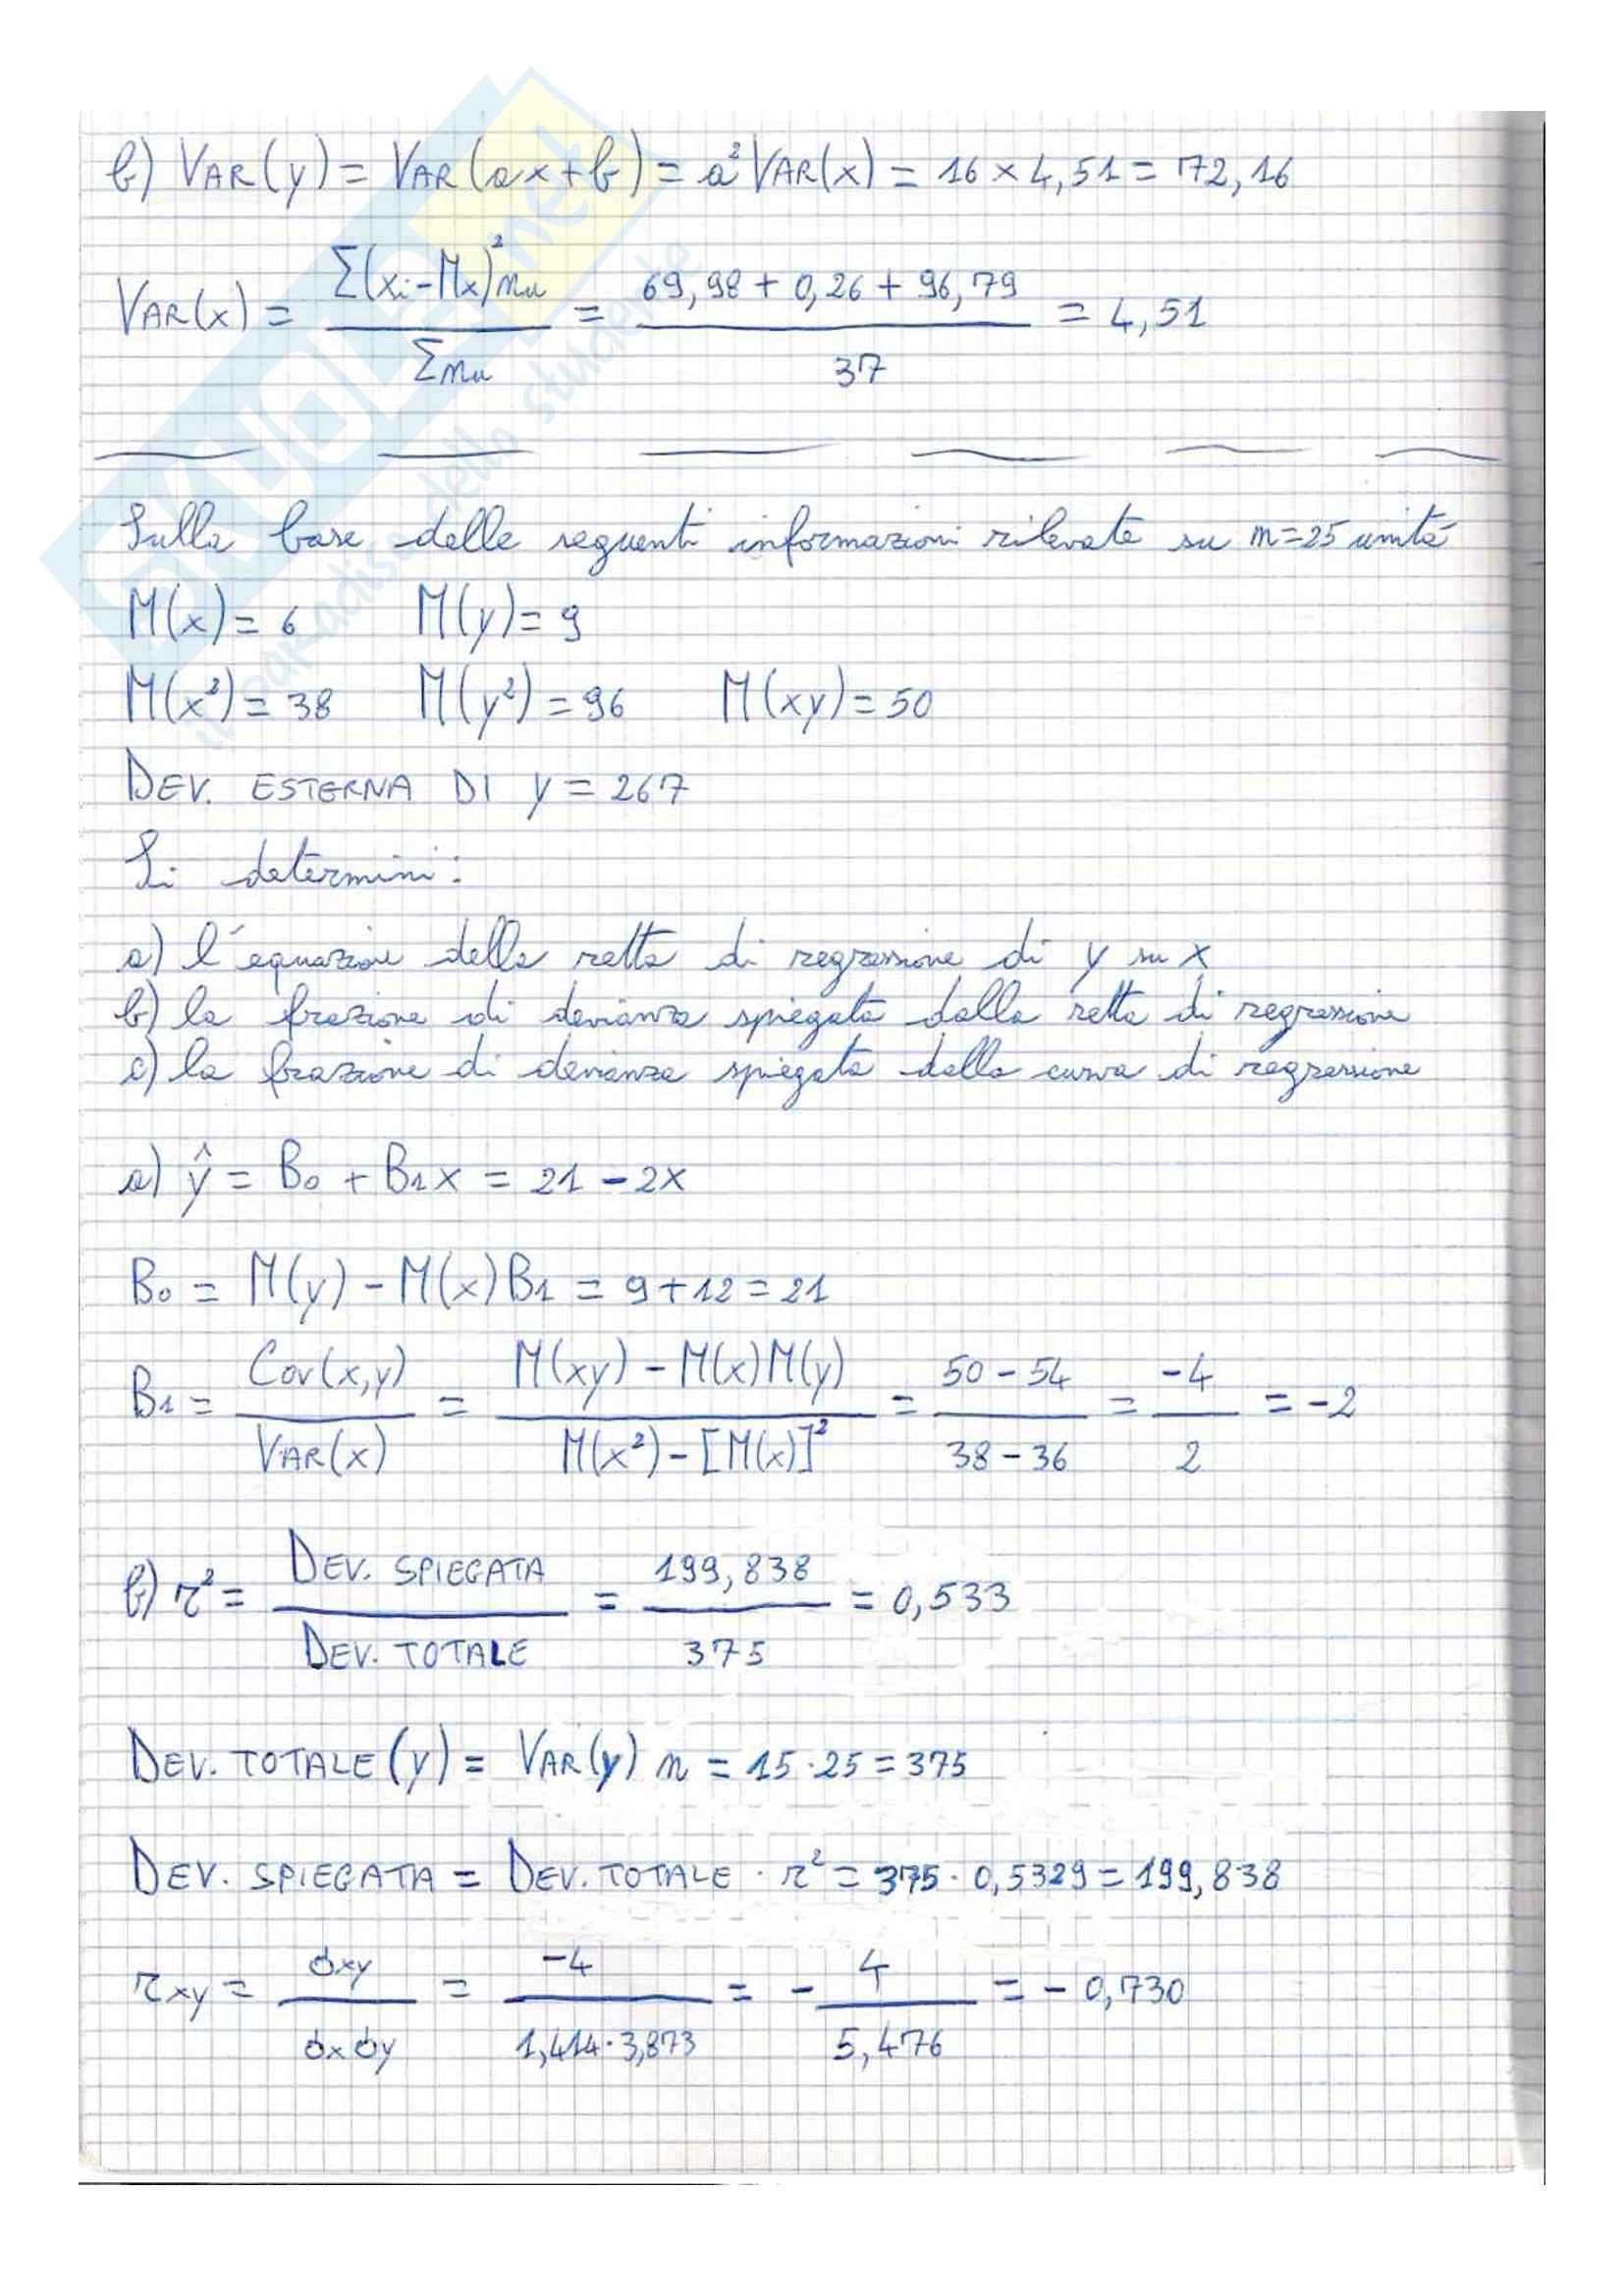 b) VAR(y) = VAR(ax+b) = a² VAR(x) = 16 × 4,51 = 72,16
VAR(x) = Σ(xi-Mx)²nu / Σnu = 69,98 + 0,26 + 96,79 / 37 = 4,51
Sulla base delle seguenti informazioni rilevate su n=25 unità
M(x) = 6 M(y) = 9
M(x²) = 38 M(y²) = 96 M(xy) = 50
DEV. ESTERNA DI y = 267
Si determini:
a) l'equazione della retta di regressione di y su x
b) la frazione di devianza spiegata dalla retta di regressione
c) la frazione di devianza spiegata dalla curva di regressione
a) ŷ = B₀ + B₁x = 21 - 2x
B₀ = M(y) - M(x)B₁ = 9 + 12 = 21
B₁ = Cov(x,y) / VAR(x) = M(xy) - M(x)M(y) / M(x²) - [M(x)]² = 50 - 54 / 38 - 36 = -4 / 2 = -2
b) r² = DEV. SPIEGATA / DEV. TOTALE = 199,838 / 375 = 0,533
DEV. TOTALE (y) = VAR(y) n = 15 · 25 = 375
DEV. SPIEGATA = DEV. TOTALE · r² = 375 · 0,5329 = 199,838
rxy = σxy / σx σy = -4 / 1,414 · 3,873 = - 4 / 5,476 = - 0,730
SKUOLA.net
il paradiso dello studente